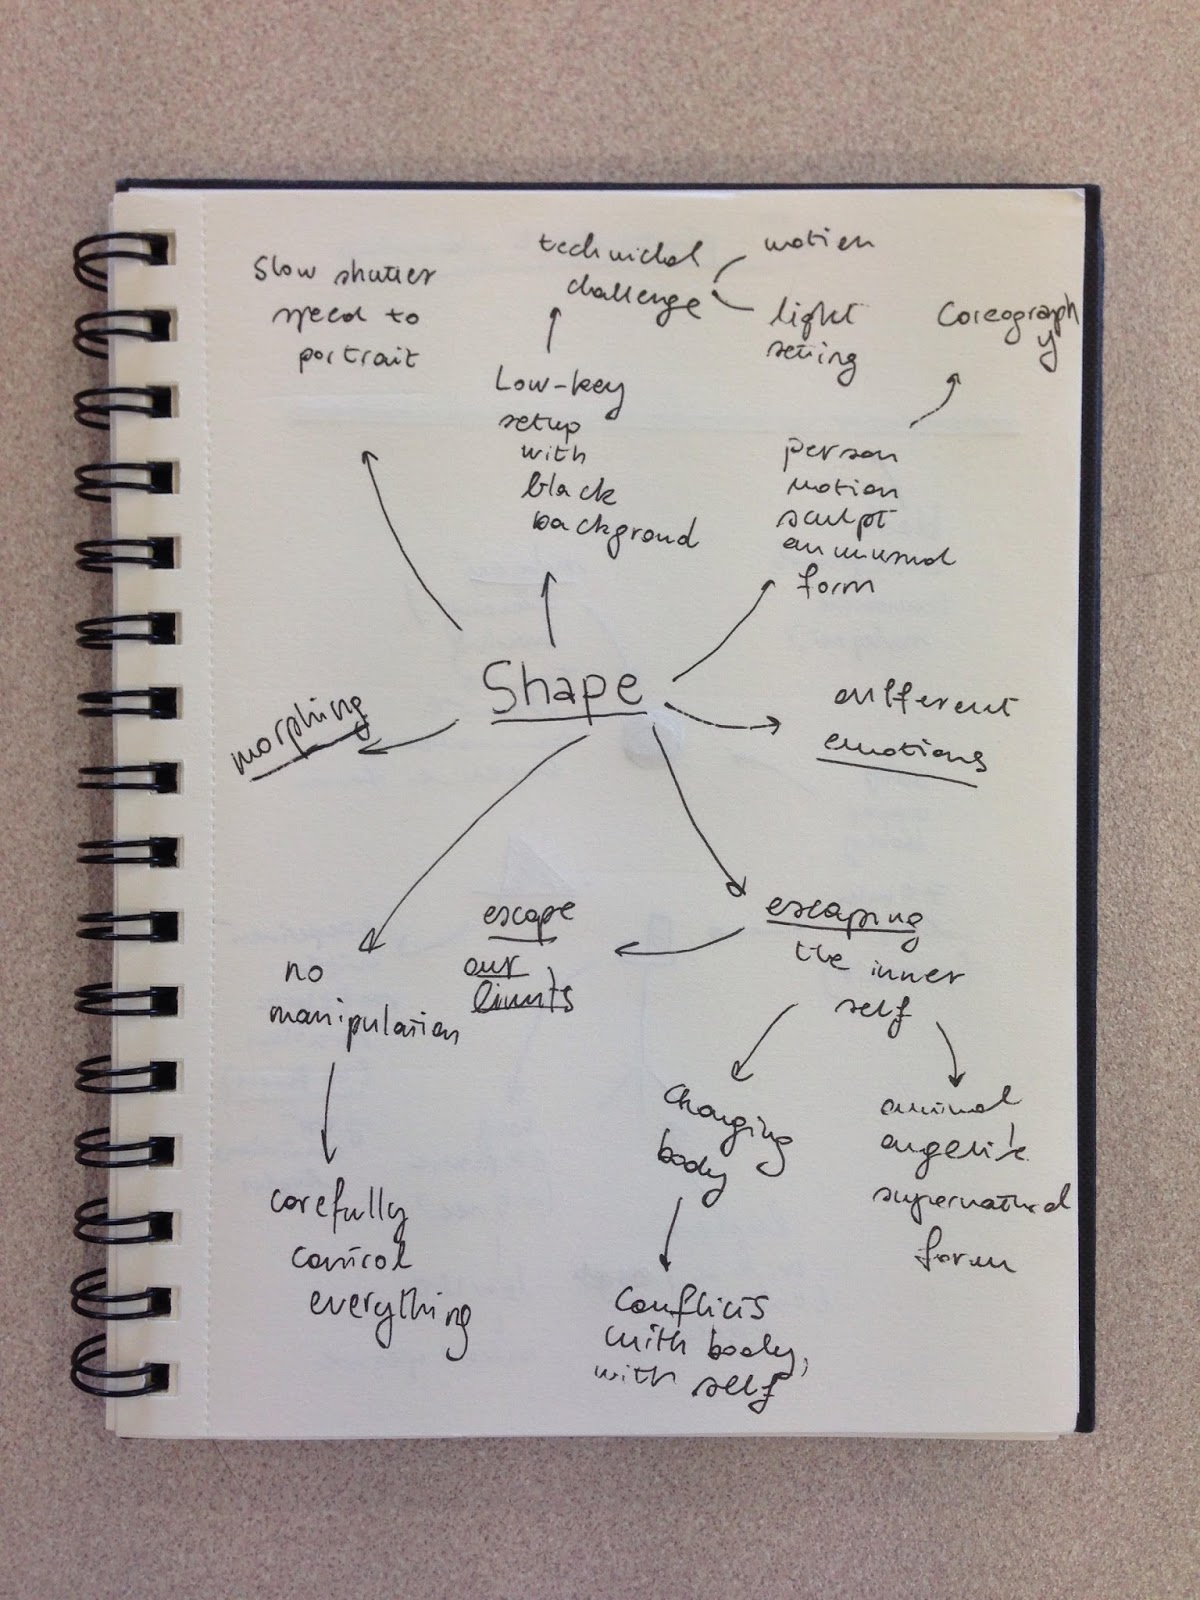 Slow shutter
speed to
portrait
technichal
challenge
motion
light
setting
Coreograph
y
Low-key
setup
with
black
background
person
motion
sculpt
an unusual
form
Shape
morphing
different
emotions
escaping
the inner
self
escape
our
limits
no
manipulation
carefully
control
everything
Changing
body
Conflicts
with body,
with self
animal
angelik
supernatural
form